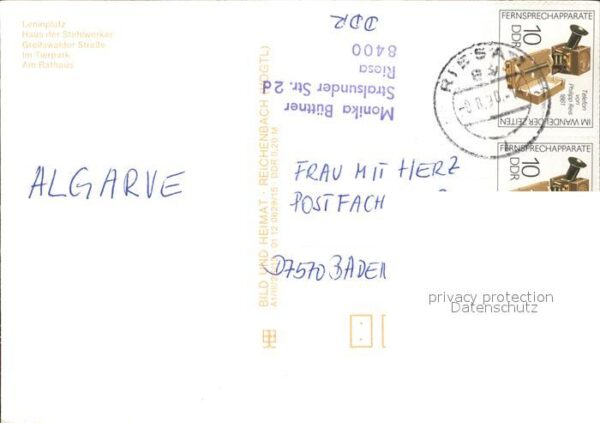 Leninplatz
Haus der Stahlwerker
Greifswalder Straße
Im Tierpark
Am Rathaus
ALGARVE
BILD UND HEIMAT · REICHENBACH (VOGTL)
Monika Büttner
Stralsunder Str. 2d
Riesa
8400
DDR
RIESA
FERNSPRECHAPPARATE
10
DDR
Telefon
von
Philipp Reis
1861
IM WANDEL DER ZEITEN
FERNSPRECHAPPARATE
10
DDR
FRAU MIT HERZ
POSTFACH
D7570 BADEN
privacy protection
Datenschutz